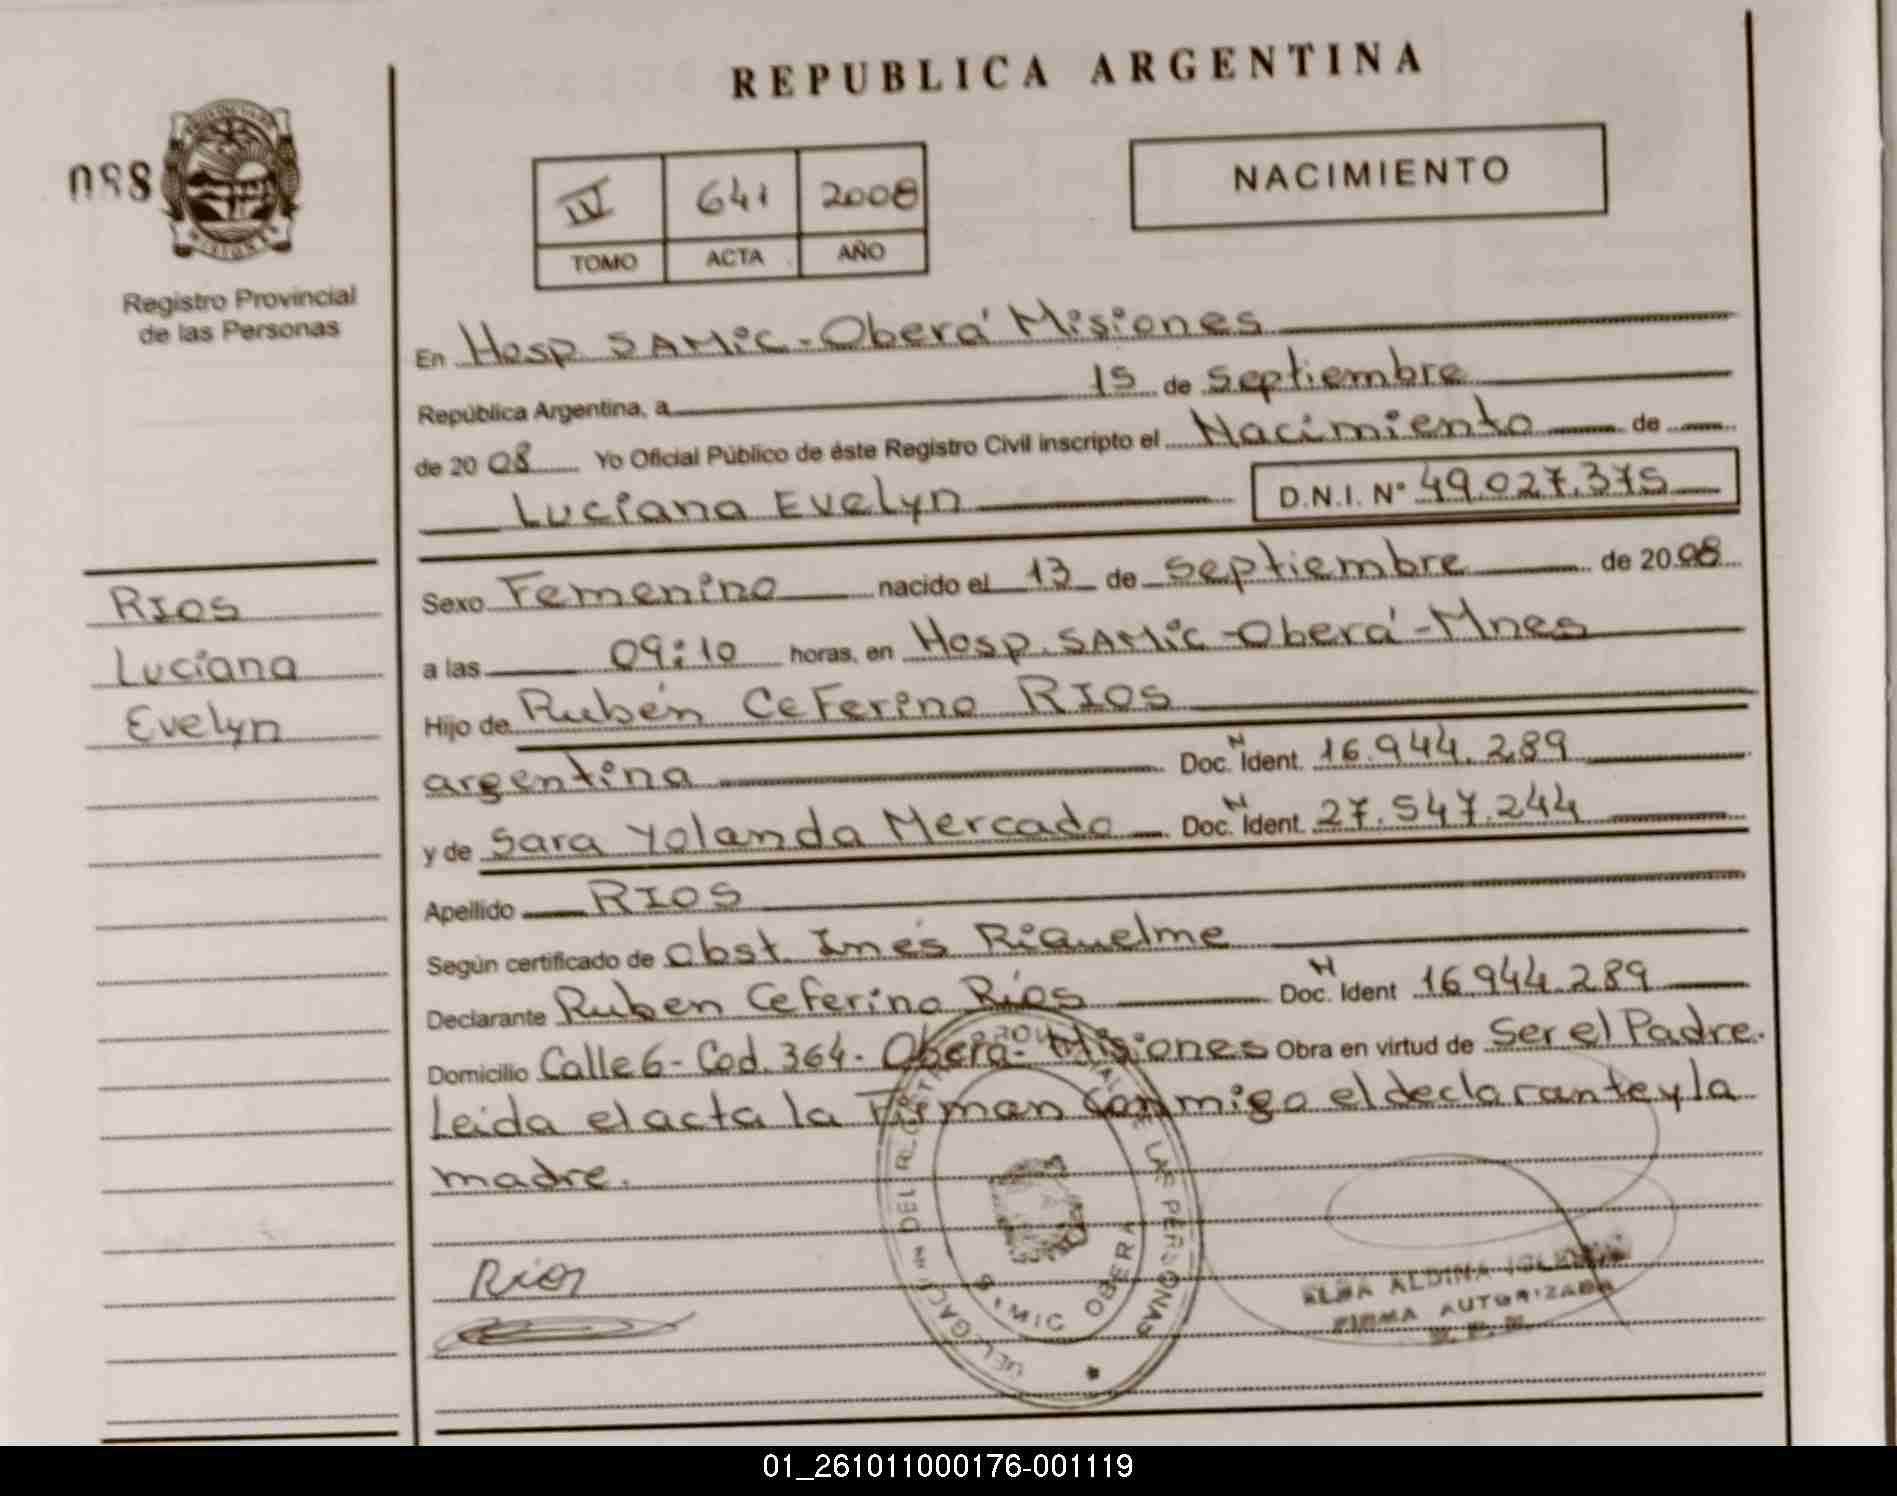 REPUBLICA ARGENTINA
088
NACIMIENTO
IV 641 2008
TOMO ACTA AÑO
Registro Provincial
de las Personas
En Hosp SAMiC - Oberá Misiones
República Argentina, a 15 de septiembre
de 2008 Yo Oficial Público de éste Registro Civil inscripto el Nacimiento de
Luciana Evelyn D.N.I. N° 49.027.375
Rios
Luciana
Evelyn
Sexo Femenino nacido el 13 de septiembre de 2008
a las 09:10 horas, en Hosp. SAMiC - Oberá - Mnes
Hijo de Rubén Ceferino RIOS
argentina Doc. N Ident. 16.944.289
y de Sara Yolanda Mercado Doc. N Ident. 27.547.244
Apellido RIOS
Según certificado de Obst Inés Riquelme
Declarante Ruben Ceferino Ríos Doc. N Ident 16.944.289
Domicilio Calle 6 - Cod. 364 - Oberá - Misiones Obra en virtud de Ser el Padre.
Leida el acta la Firman conmigo el declarante y la
madre.
Rios
DEL REGISTRO PROVINCIAL DE LAS PERSONAS
SAMIC OBERA
ELBA ALDINA
FIRMA AUTORIZADA
01_261011000176-001119